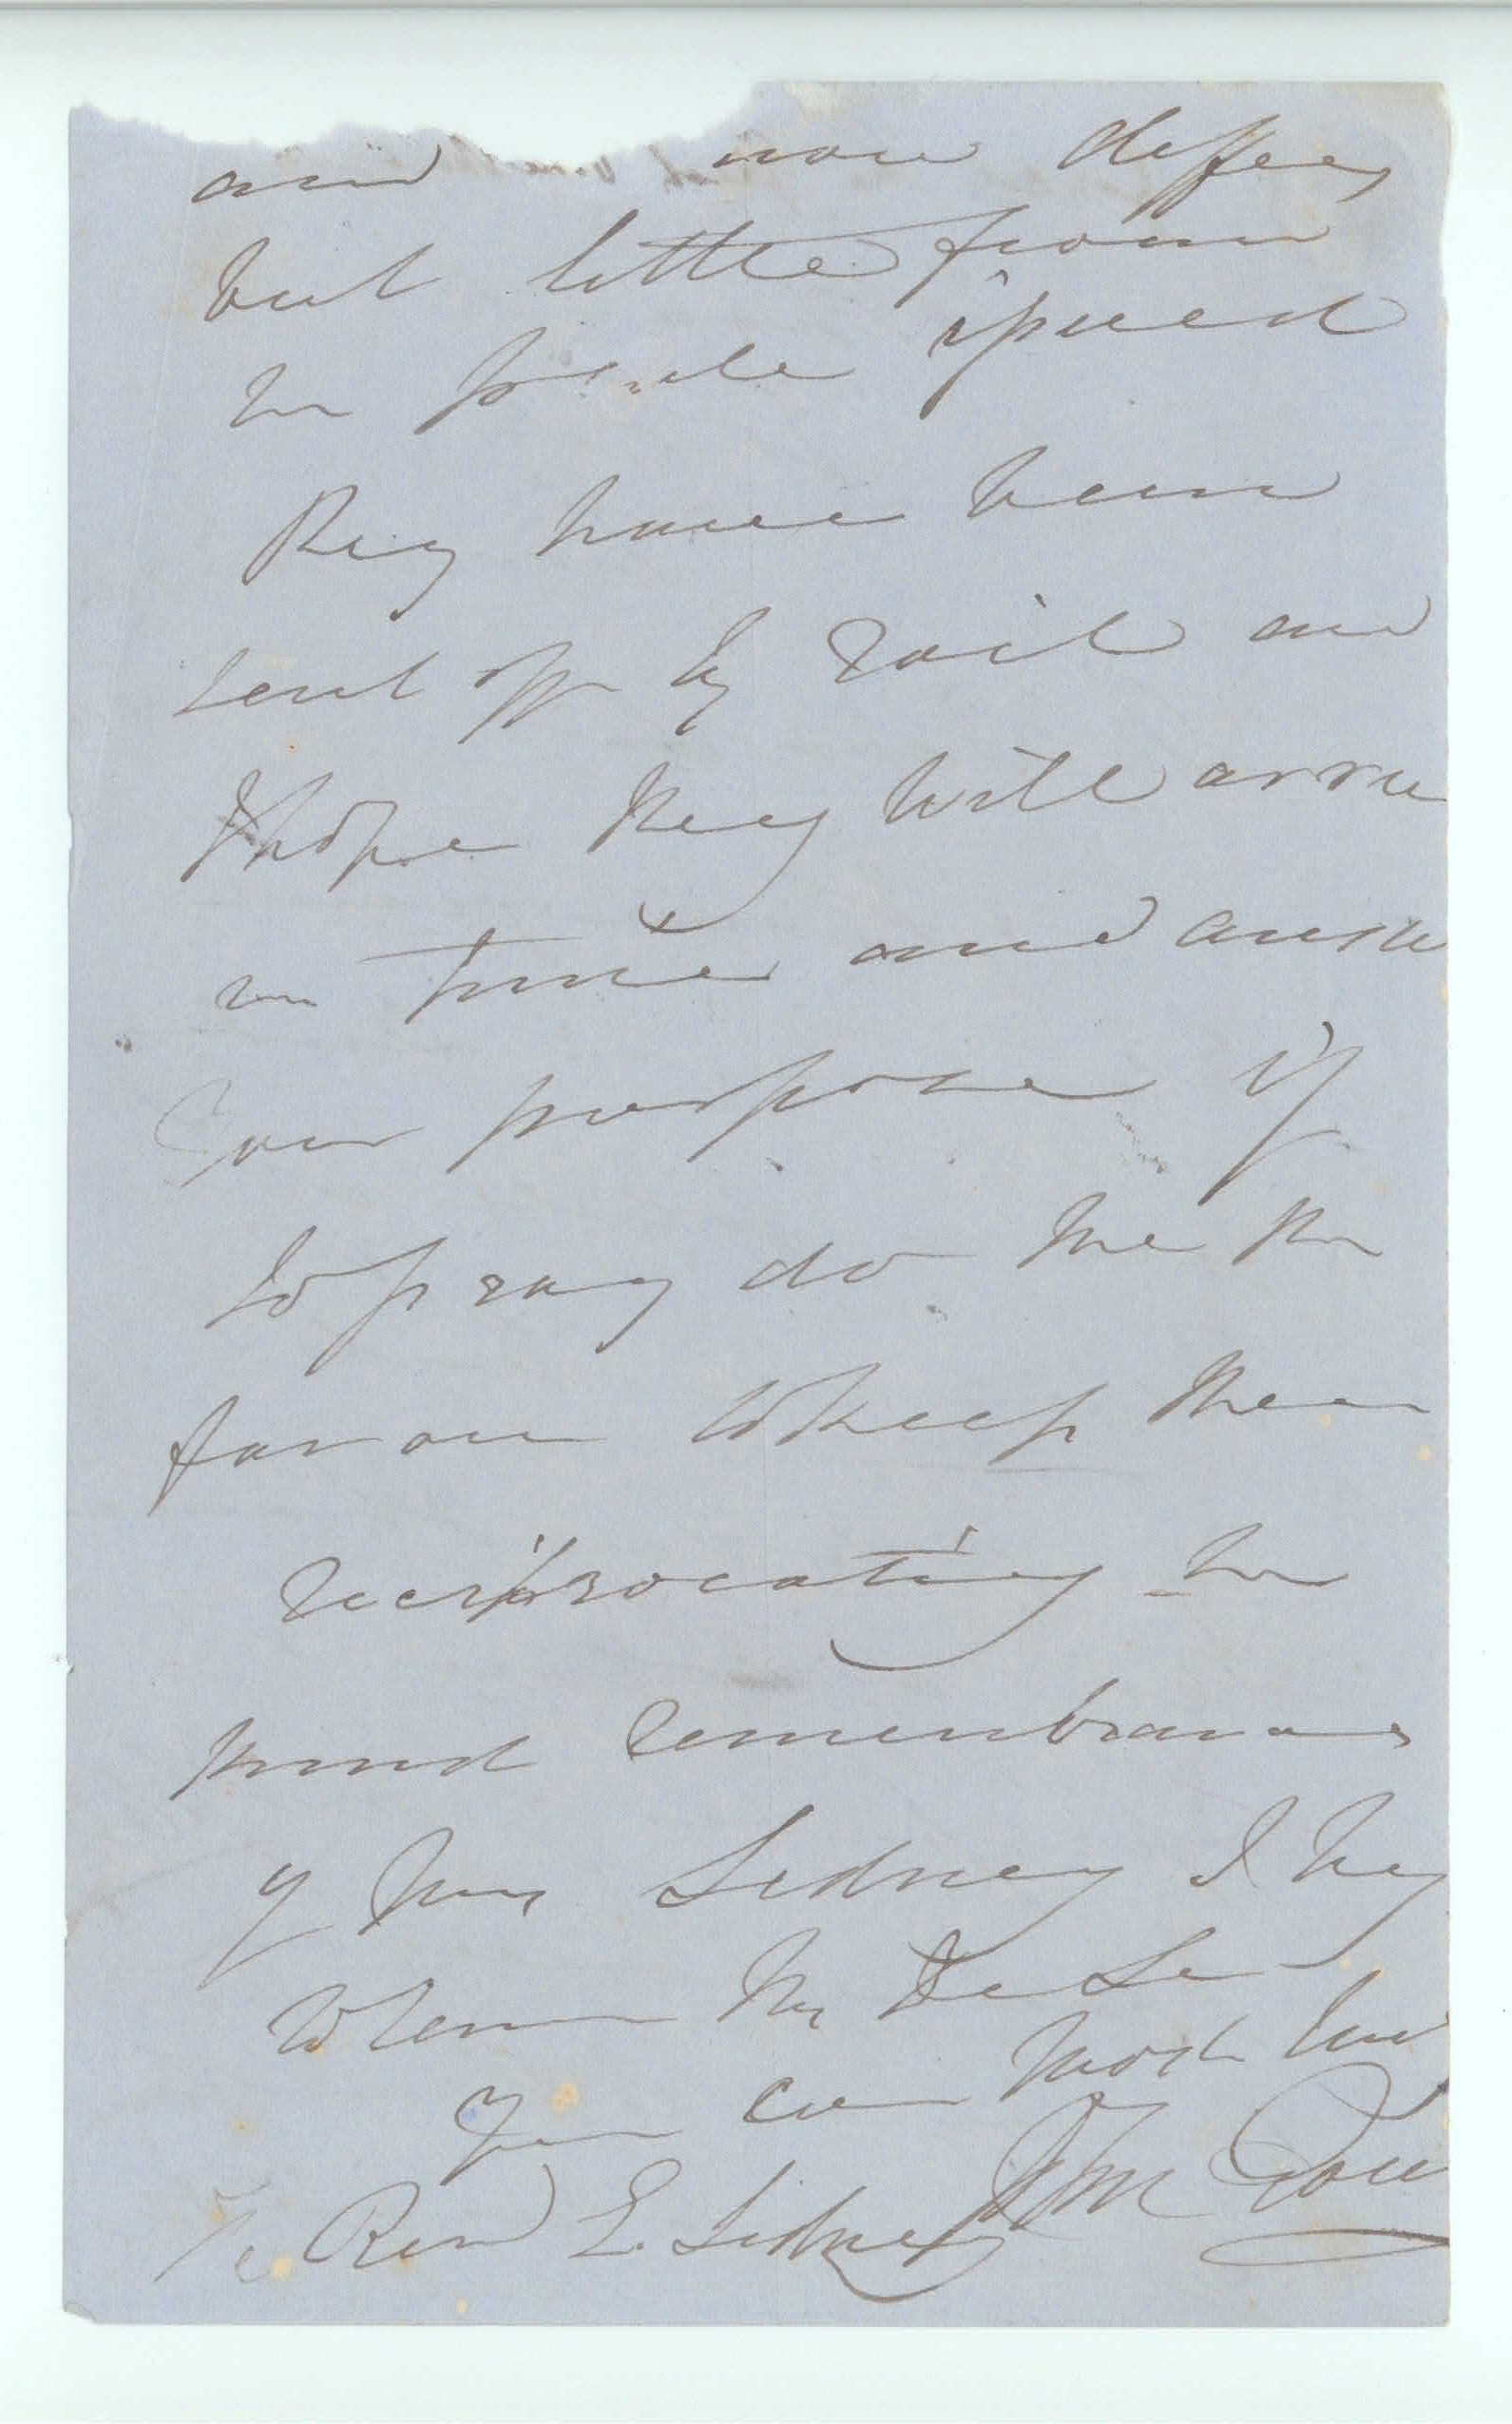 and now differs
but little from
the female
They have been
sent off by rail and
I hope they will arrive
in time and answer
Your purpose if
so pray do me the
favour to keep them
reciprocating the
kind remembrances
of Mrs Sidney I beg
to remain My Dear Sir
Your most
The Revd E. Sidney